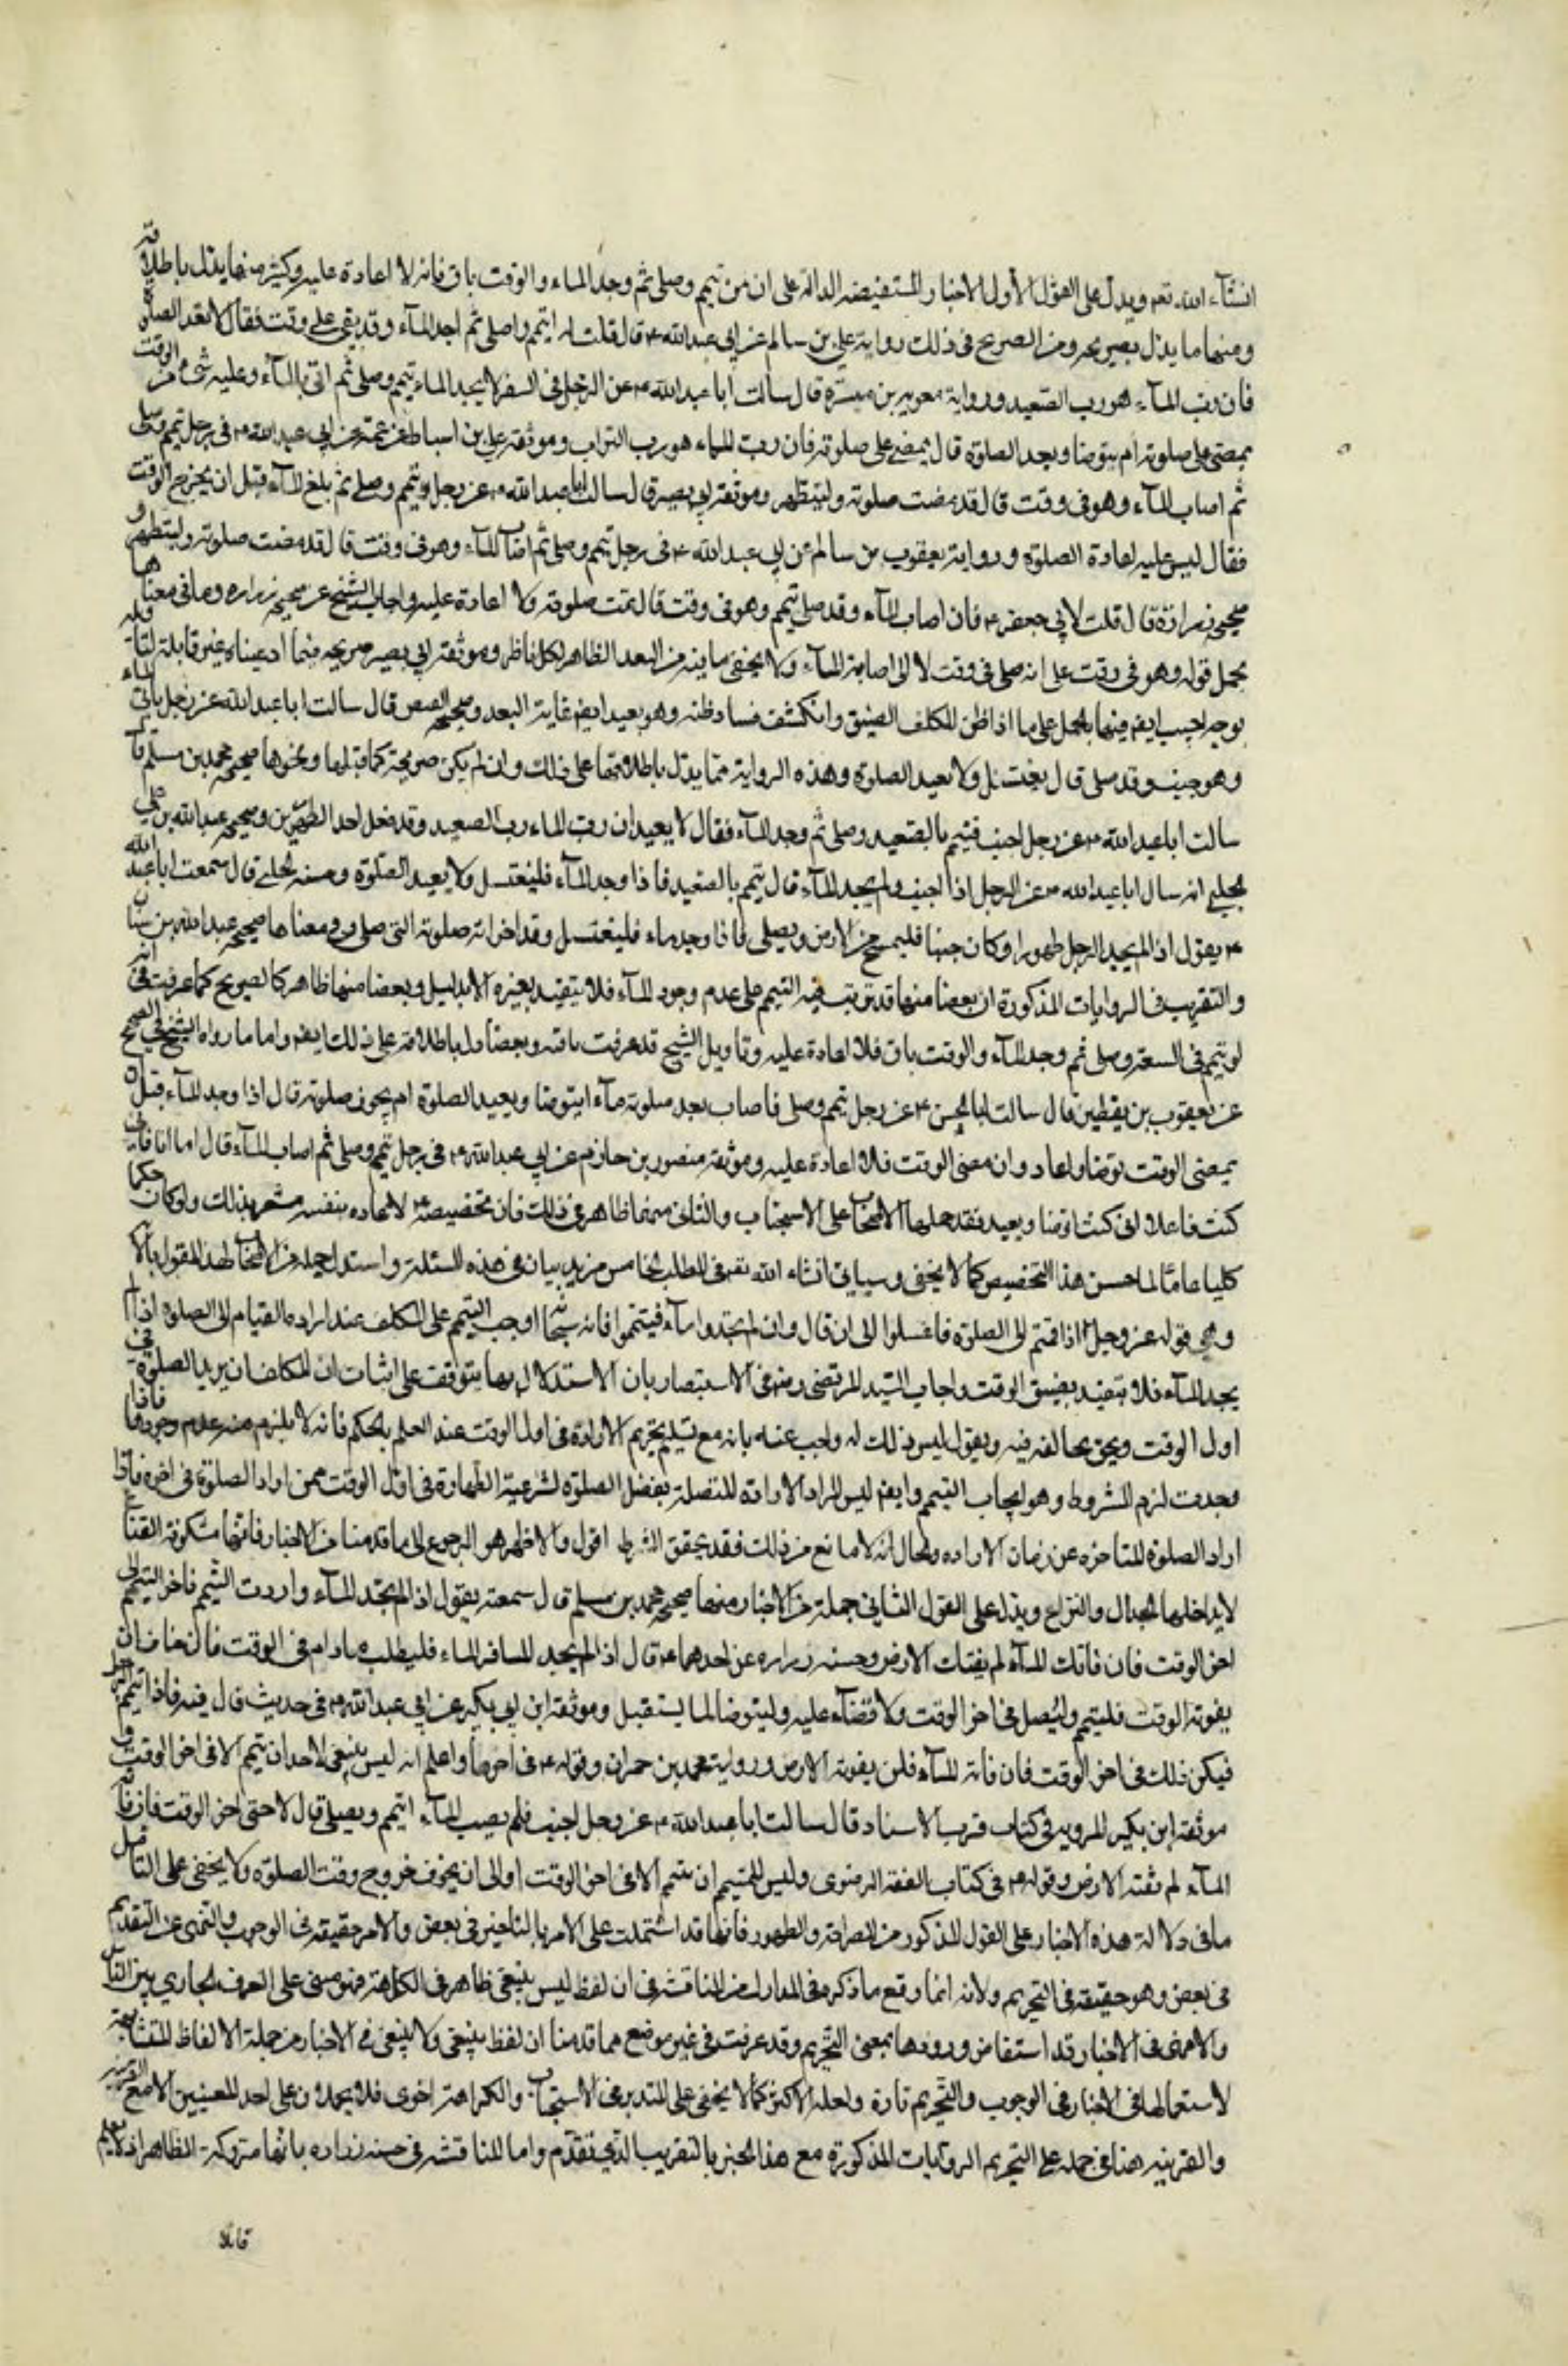 انشآء الله تعم ويدل على القول الأول الاخبار المستفيضه الدالة على ان من تيمم وصلى ثم وجد الماء والوقت باق فانه لا اعادة عليه وكثير منها يدل باطلاقه
ومنها ما يدل بصريحه ومن الصريح فى ذلك رواية على بن سالم عن ابى عبد الله ع قال قلت له اتيمم واصلى ثم اجد المآء وقد بقى على وقت فقال لا تعد الصلوة
فان رب المآء هو رب الصعيد ورواية معوية بن ميسرة قال سألت ابا عبد الله ع عن الرجل فى السفر لا يجد الماء تيمم وصلى ثم اتى بالمآء وعليه شئ من الوقت
يمضى على صلوته ام يتوضا ويعيد الصلوة قال يمضى على صلوته فان رب الماء هو رب التراب وموثقة على بن اسباط عن عمه عن ابى عبد الله ع فى رجل تيمم وصلى
ثم اصاب المآء وهو فى وقت قال قد مضت صلوته وليتطهر وموثقة ابى بصير قال سالت ابا عبد الله ع عن رجل تيمم وصلى ثم بلغ المآء قبل ان يخرج الوقت
فقال ليس عليه اعادة الصلوة ورواية يعقوب بن سالم عن ابى عبد الله ع فى رجل تيمم وصلى ثم اصاب المآء وهو فى وقت قال قد مضت صلوته وليتطهر و
صحيحة زرارة قال قلت لابى جعفر ع فان اصاب المآء وقد صلى بتيمم وهو فى وقت قال تمت صلوته ولا اعادة عليه واجاب الشيخ عن صحيحة زراره وما فى معناها
بحمل قوله وهو فى وقت على انه صلى فى وقت لا الى اصابة المآء ولا يخفى ما فيه من البعد الظاهر لكل ناظر وموثقة ابى بصير صريحه فيما ادعيناه غير قابلة لتاويله
بوجه واجيب ايضم عنها بالحمل على ما اذا ظن المكلف الضيق وانكشف فساد ظنه وهو بعيد ايضم غاية البعد وصحيحة العيص قال سالت ابا عبد الله عن رجل ياتى الماء
وهو جنب وقد صلى قال يغتسل ولا يعيد الصلوة وهذه الرواية مما يدل باطلاقها على ذلك وان لم يكن صريحة كما قبلها ونحوها صحيحة محمد بن مسلم قال
سالت ابا عبد الله ع عن رجل اجنب فتيمم بالصعيد وصلى ثم وجد المآء فقال لا يعيد ان رب الماء رب الصعيد وقد فعل احد الطهورين وصحيحة عبد الله بن على
الحلبى انه سال ابا عبد الله ع عن الرجل اذا اجنب ولم يجد المآء قال تيمم بالصعيد فاذا وجد المآء فليغتسل ولا يعيد الصلوة وحسنة الحلبى قال سمعت ابا عبد الله
ع يقول اذا لم يجد الرجل طهورا وكان جنبا فليمسح من الارض ويصلى فاذا وجد ماء فليغتسل وقد اجزاته صلوته التى صلى وبمعناها صحيحة عبد الله بن سنان
والتقريب فى الروايات المذكورة ان بعضا منها قد ترتب فيه التيمم على عدم وجود المآء فلا يتقيد بغيره الا بدليل وبعضا منها ظاهر كالصريح كما عرفت فى انه
لو تيمم فى السعة وصلى ثم وجد المآء والوقت باق فلا اعادة عليه وتاويل الشيخ قد عرفت ما فيه وبعضا دل باطلاقه على ذلك ايضم واما ما رواه الشيخ فى الصحيح
عن يعقوب بن يقطين قال سالت ابا الحسن ع عن رجل تيمم وصلى فاصاب بعد صلوته مآء ايتوضا ويعيد الصلوة ام يجوز صلوته قال اذا وجد المآء قبل ان
يمضى الوقت توضا واعاد وان مضى الوقت فلا اعادة عليه وموثقة منصور بن حازم عن ابى عبد الله ع فى رجل تيمم وصلى ثم اصاب المآء قال اما انا فانى
كنت فاعلا انى كنت اتوضا وبعيد فقد حملهما الاصحاب على الاستحباب والثانى منهما ظاهر فى ذلك فان تخصيصه ع الاعاده بنفسه مشعر بذلك ولو كان حكما
كليا عاما لما حسن هذا التخصيص كما لا يخفى وسياتى انشاء الله تعم فى المطلب الخامس مزيد بيان فى هذه المسئلة واستدل جمله من الاصحاب لهذا القول بالآية
وهى قوله عز وجل اذا قمتم الى الصلوة فاغسلوا الى ان قال وان لم تجدوا مآء فتيمموا فانه سبحانه اوجب التيمم على المكلف عند اراده القيام الى الصلوة اذا لم
يجد المآء فلا يتقيد بضيق الوقت واجاب السيد المرتضى رضه فى الانتصار بان الاستدلال بها يتوقف على اثبات ان للمكلف ان يريد الصلوة فى
اول الوقت ونحن نخالف فيه ونقول ليس ذلك له واجيب عنه بانه مع تسليم تحريم الارادة فى اول الوقت عند العلم بالحكم فانه لا يلزم منه عدم وجودها فاذا
وجدت لزم المشروط وهو ايجاب التيمم وايضم ليس المراد الاراده المتصلة بفعل الصلوة لشرعية الطهارة فى اول الوقت ممن اراد الصلوة فى اخره فاذا
اراد الصلوة المتاخره عن زمان الاراده والحال انه لا مانع من ذلك فقد يحقق الشرط اقول والاظهر هو الرجوع الى ما قدمنا من الاخبار فانها مشكوفة القناع
لا يداخلها الجدال والنزاع ويدل على القول الثانى جملة من الاخبار منها صحيحة محمد بن مسلم قال سمعته يقول اذا لم تجد المآء واردت التيمم فاخر التيمم الى
اخر الوقت فان فاتك المآء لم يفتك الارض وحسنة زراره عن احدهما ع قال اذا لم يجد المسافر الماء فليطلب مادام فى الوقت فاذا خاف ان
يفوته الوقت فليتيمم وليصل فى اخر الوقت ولا قضآء عليه وليتوضا لما يستقبل وموثقة ابن ابى بكير عن ابى عبد الله ع فى حديث قال فيه فاذا تيمم الرجل
فيكن ذلك فى اخر الوقت فان فاته المآء فلن يفوته الارض ورواية محمد بن حمران وقوله ع فى اخرها واعلم انه ليس ينبغى لاحد ان يتيمم الا فى اخر الوقت و
موثقة ابن بكير المرويه فى كتاب قرب الاسناد قال سالت ابا عبد الله ع عن رجل اجنب فلم يصب المآء ايتيمم ويصلى قال لا حتى اخر الوقت فان فاته
المآء لم تفته الارض وقوله ع فى كتاب الفقه الرضوى وليس للمتيمم ان يتيمم الا فى اخر الوقت او الى ان يخوف خروج وقت الصلوة ولا يخفى على التامل
ما فى دلالة هذه الاخبار على القول المذكور من الصراحة والظهور فانها قد اشتملت على الامر بالتاخير فى بعض والامر حقيقة فى الوجوب والنهى عن التقديم
فى بعض وهو حقيقة فى التحريم ولانه انما وقع ما ذكره فى المدارك من المناقشه فى ان لفظ ليس ينبغى ظاهر فى الكراهة فهو مبنى على العرف الجارى بين الناس
والا فهى فى الاخبار قد استفاض ورودها بمعنى التحريم وقد عرفت فى غير موضع مما قدمنا ان لفظ ينبغى ولا ينبغى فى الاخبار من جملة الالفاظ المتشابهة
لاستعمالها فى الاخبار فى الوجوب والتحريم تارة ولعله الاكثر كما لا يخفى على المتدبر وفى الاستحباب والكراهة اخرى فلا يحملان على احد المعنيين الا مع القرينه
والقرينه هنا فى حمله على التحريم الروايات المذكورة مع هذا الخبر بالتقريب الذى تقدم واما المناقشه فى حسنة زراره بانها متروكة الظاهر اذ لا يعلم
قائلا